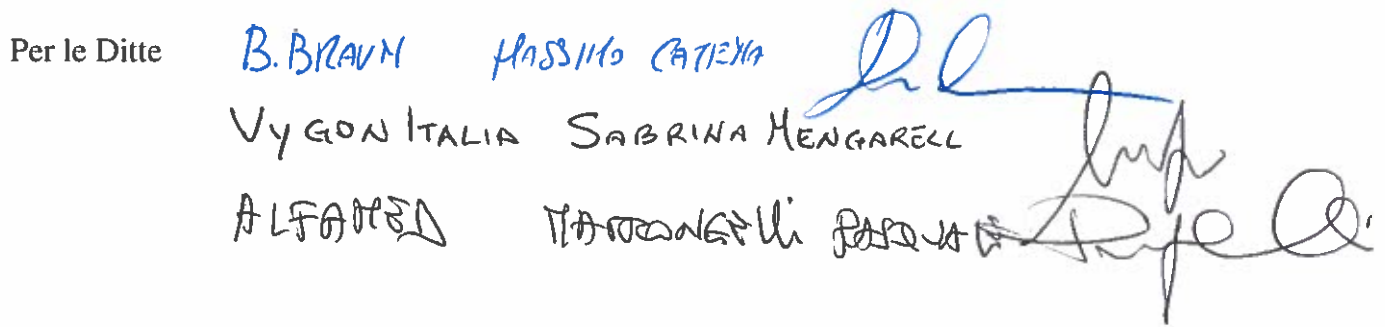 Per le Ditte B. BRAUN MASSIMO CATENA
VYGON ITALIA SABRINA MENGARELL
ALFAMED PASQUALE